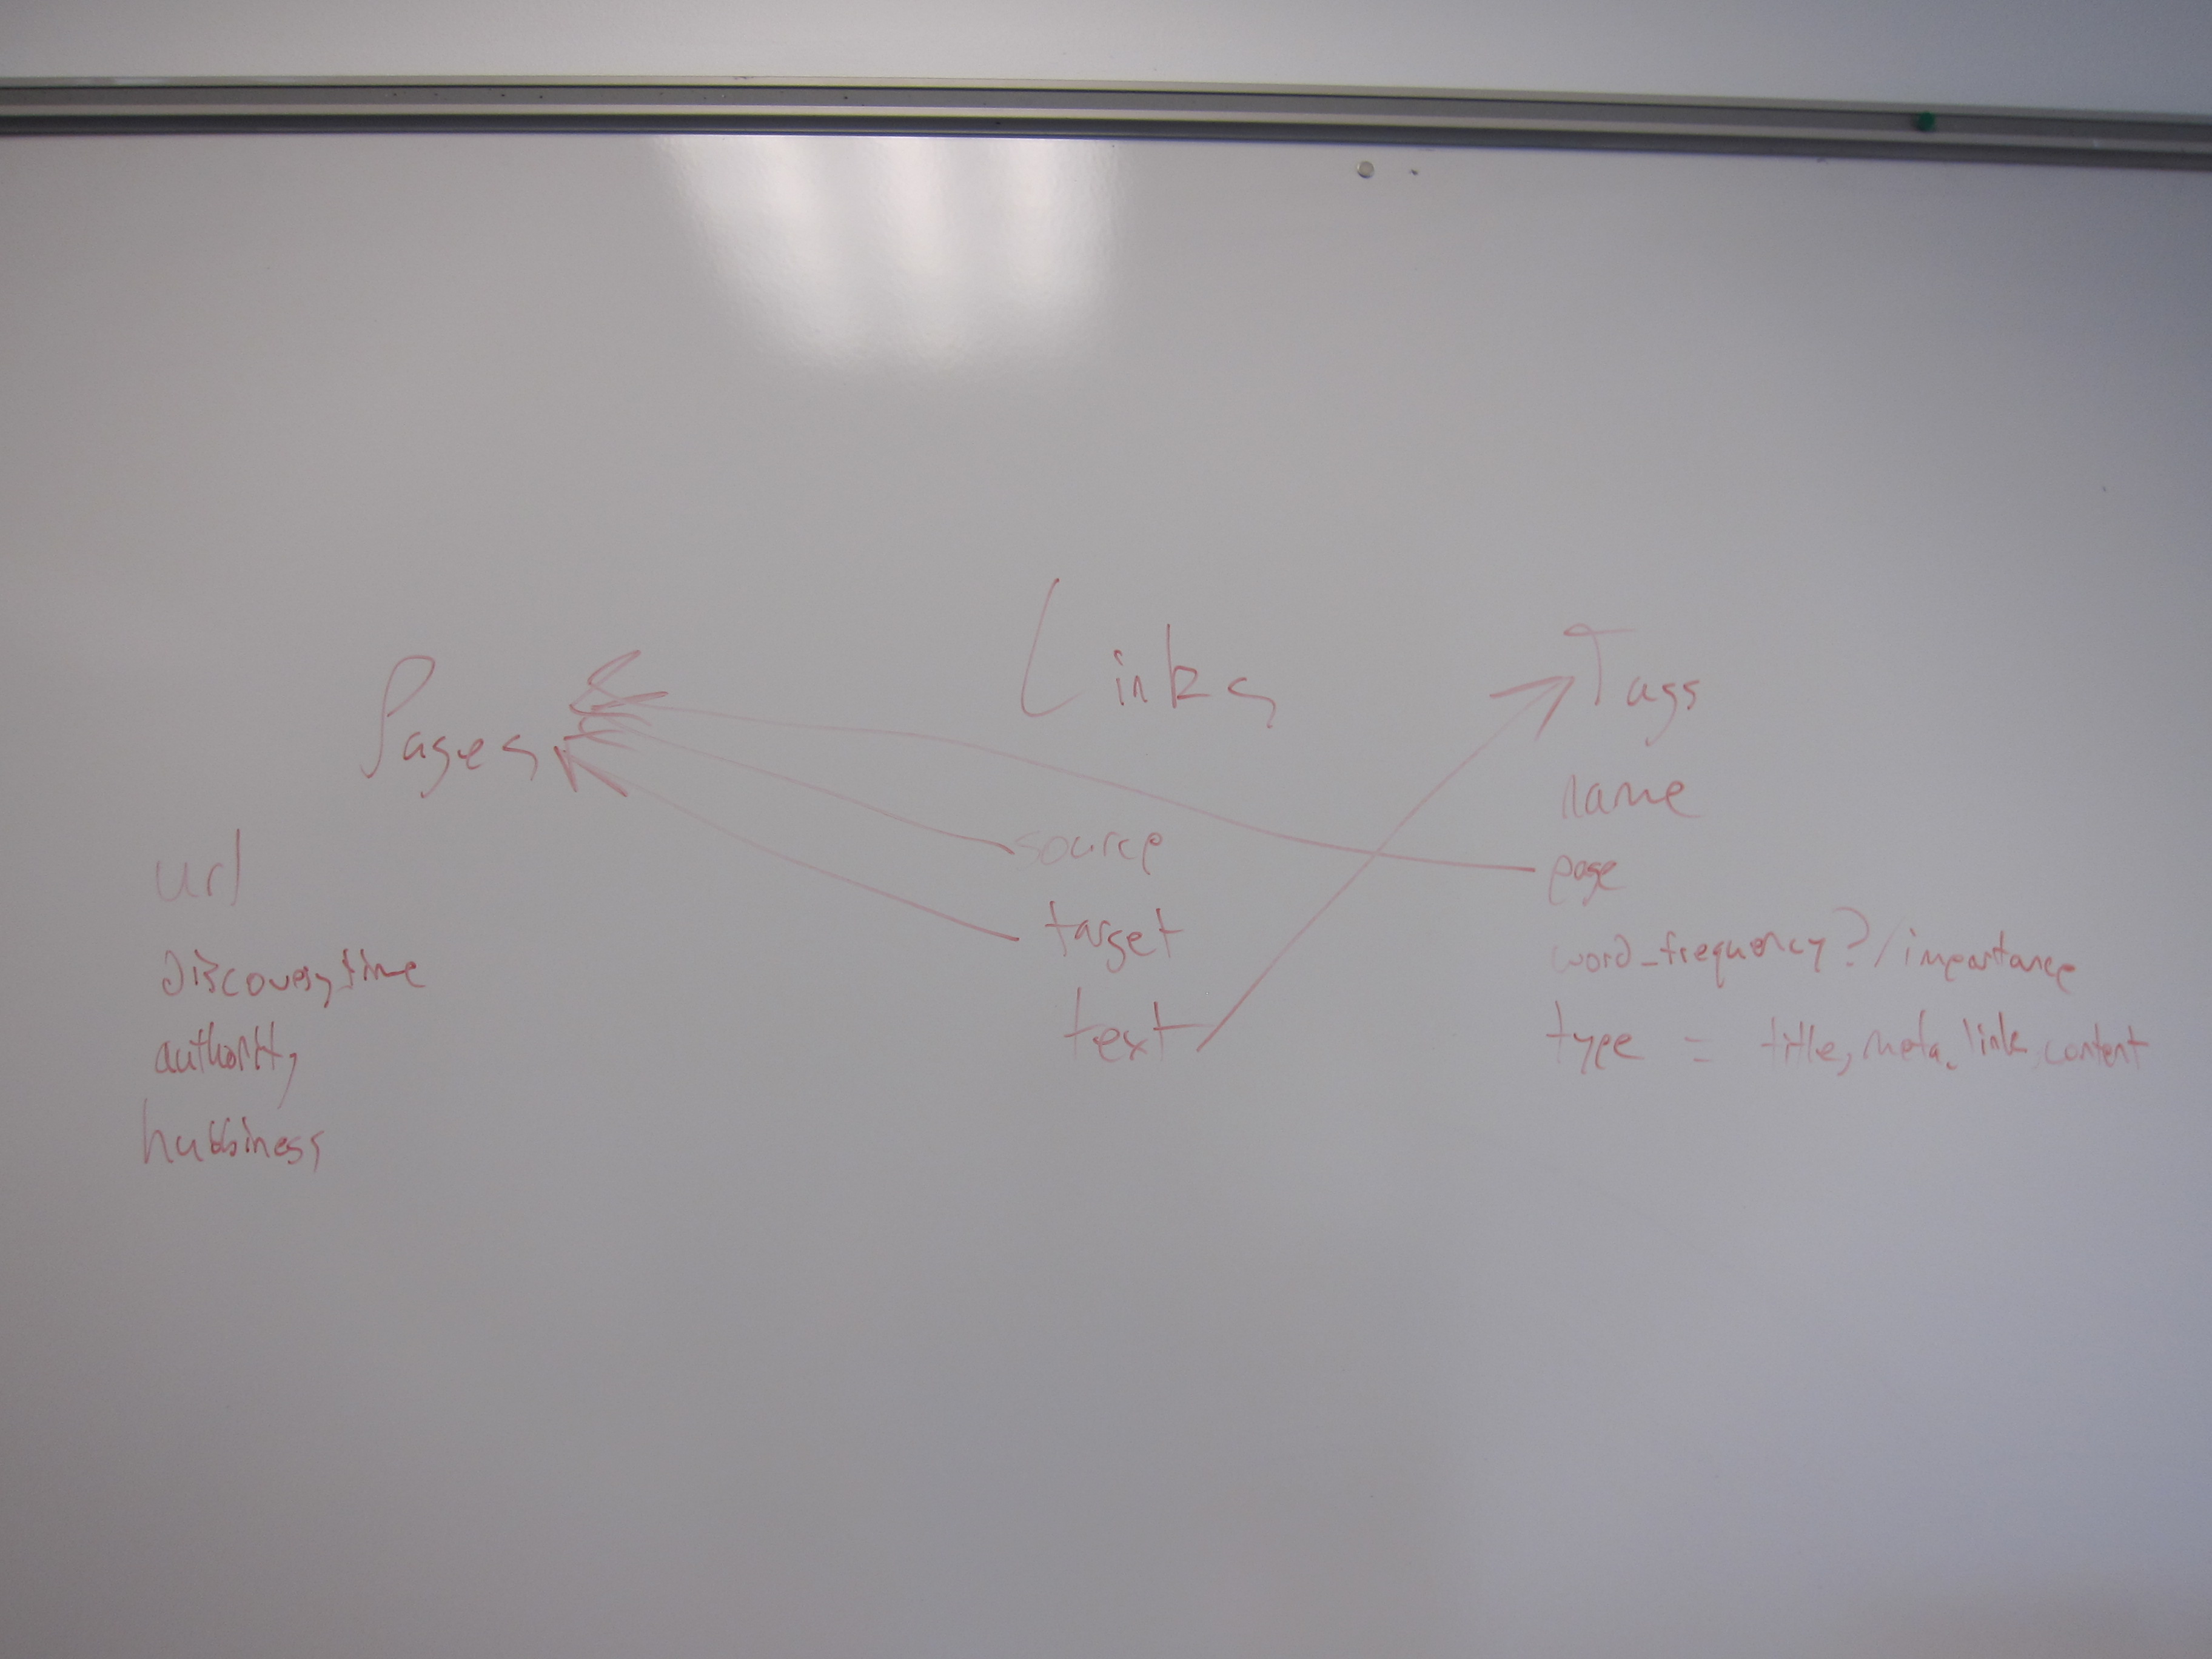 Pages
url
discovery time
authority
hubbiness
Links
source
target
text
Tags
name
page
word_frequency?/importance
type = title, meta, link, content